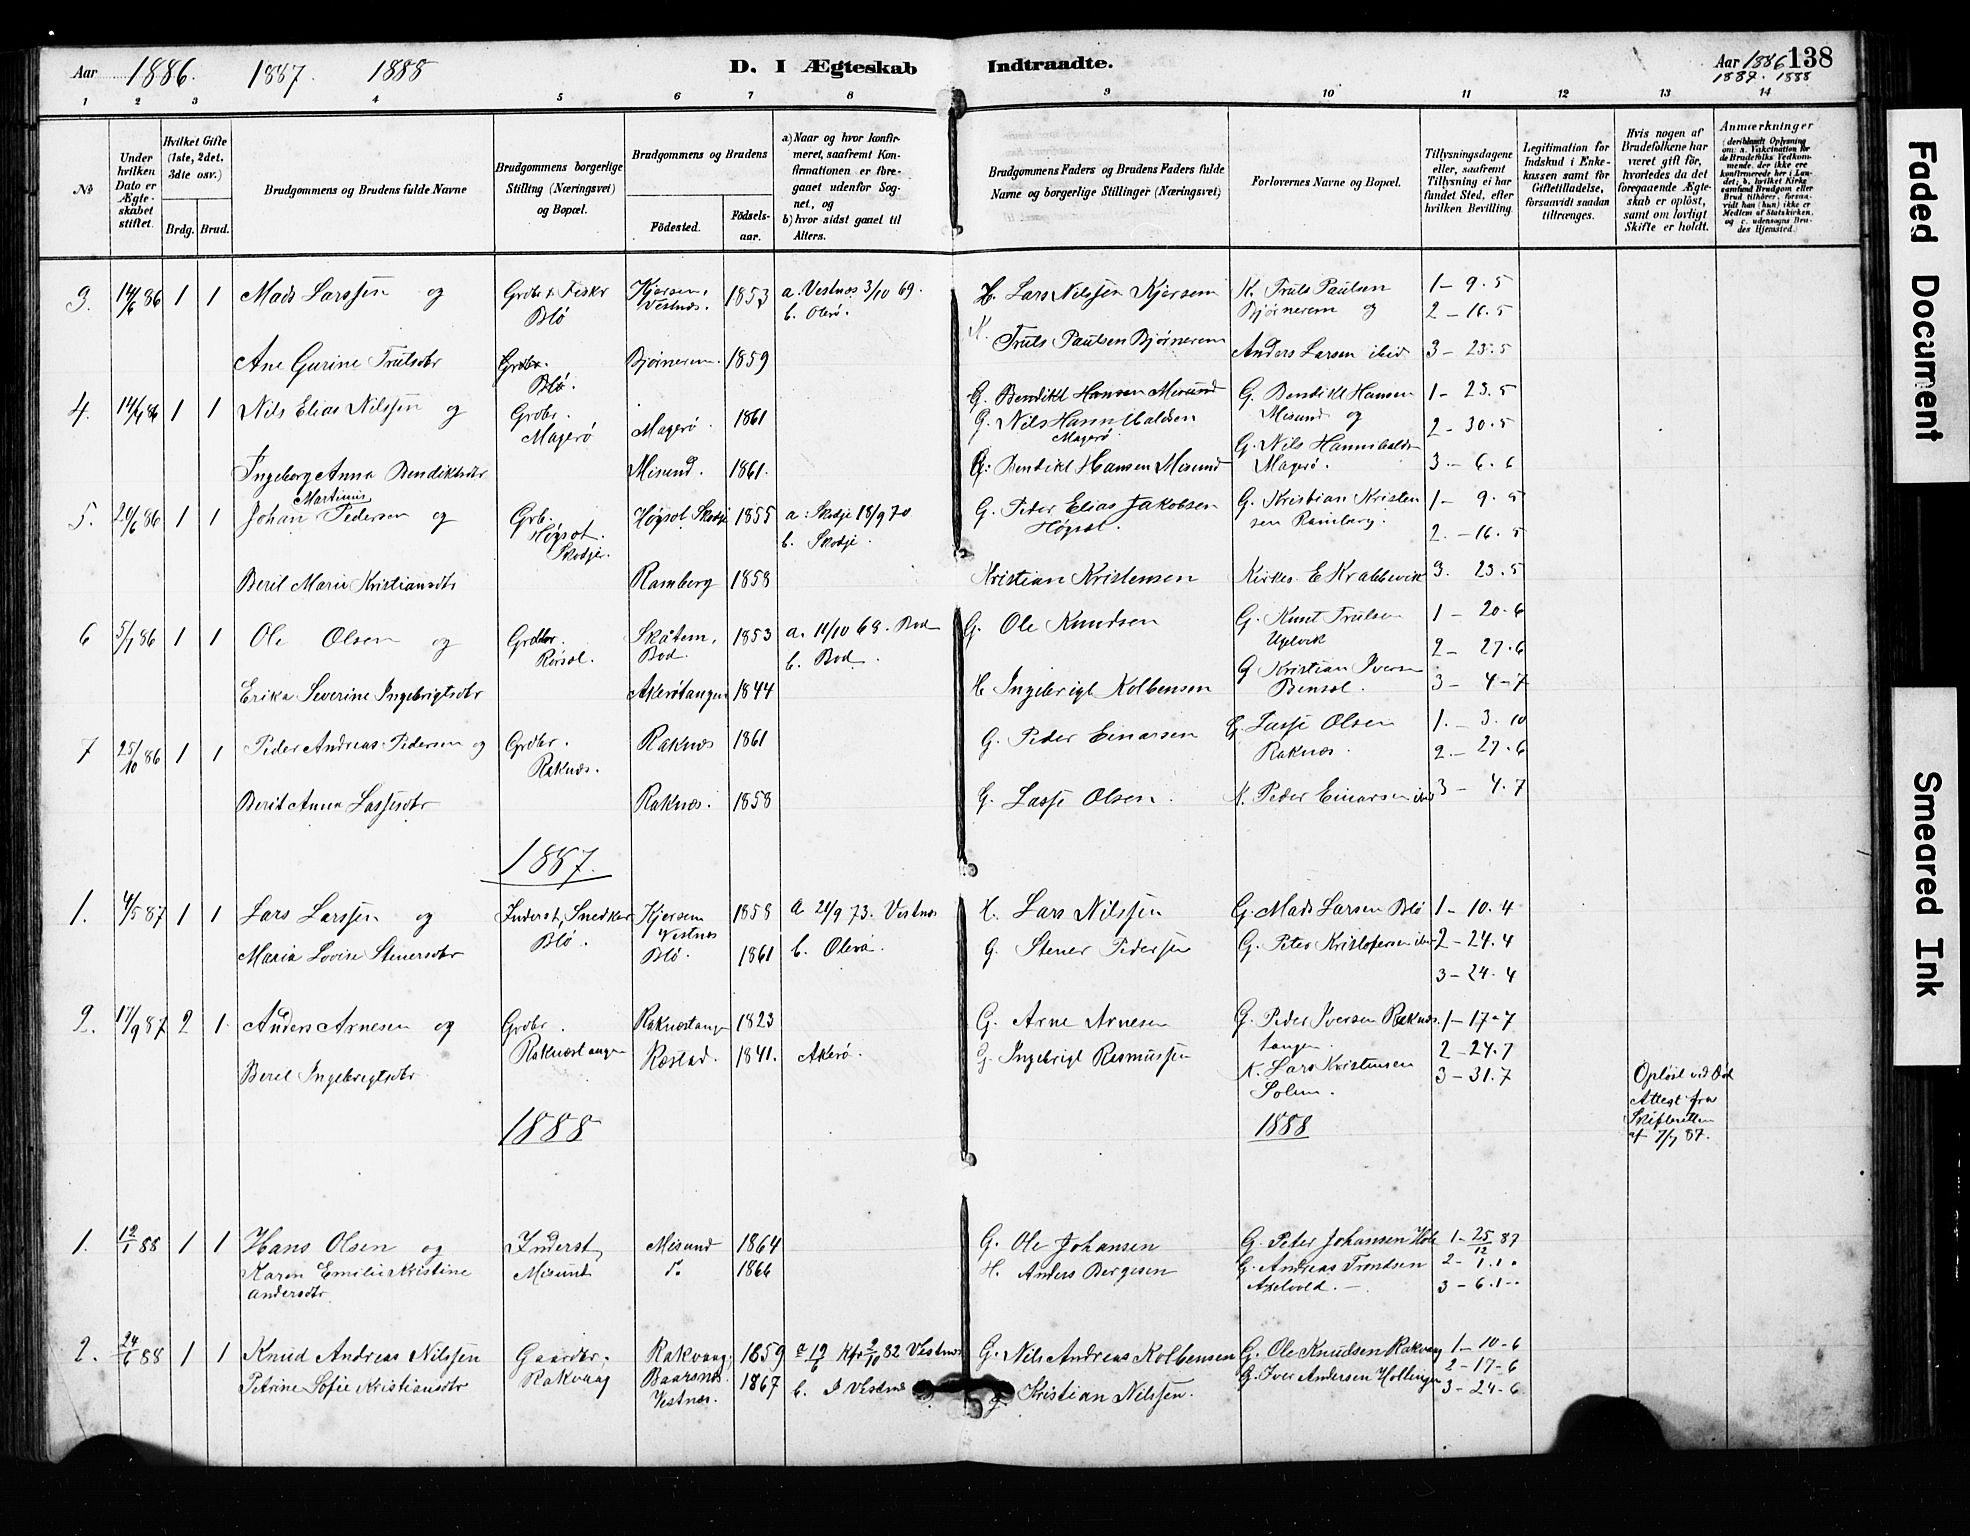 Aar 1886. 1887. 1888 D. I Ægteskab Indtraadte. Aar 1886 138
1887. 1888
1 2 3 4 5 6 7 8 9 10 11 12 13 14
No
Under hvilken Dato er Ægteskabet stiftet.
Hvilket Gifte (1ste, 2det, 3die osv.)
Brdg. Brud.
Brudgommens og Brudens fulde Navne
Brudgommens borgerlige Stilling (Næringsvei) og Bopæl.
Brudgommens og Brudens
Fødested. Fødsels-aar.
a) Naar og hvor konfirmeret, saafremt Konfirmationen er foregaaet udenfor Sognet, og
b) hvor sidst gaaet til Alters.
Brudgommens Faders og Brudens Faders fulde Navne og borgerlige Stillinger (Næringsvei)
Forlovernes Navne og Bopæl.
Tillysningsdagene eller, saafremt Tillysning ei har fundet Sted, efter hvilken Bevilling.
Legitimation for Indskud i Enkekassen samt for Giftetilladelse, forsaavidt saadan tiltrænges.
Hvis nogen af Brudefolkene har været gift før, hvorledes da det foregaaende Ægteskab er opløst, samt om lovligt Skifte er holdt.
Anmærkninger
(deriblandt Oplysning om: a. Vakcination for de Brudefolks Vedkommende, der ikke ere konfirmerede her i Landet; b. hvilket Kirkesamfund Brudgom eller Brud tilhører, forsaavidt han (hun) ikke er Medlem af Statskirken, og c. udensogns Brudes Hjemsted.)
3. 14/6 86 1 1 Mads Larssen og Grdbr & Fiskr Kjersem, 1853 a. Vestnæs 3/10 69. H. Lars Nilssen Kjersem K. Truls Paulsen 1 - 9. 5
Blø Vestnæs. b. Olerø. Bjørnerem og 2 - 16. 5
Ane Gurine Trulsdtr Grdbr. Bjørnerem. 1859 K. Truls Paulsen Bjørnerem Anders Larsen ibid 3 - 23. 5
Blø.
G. Bendikt Hansen Misund
4. 14/6 86 1 1 Nils Elias Nilssen og Grdbr. Magerø. 1861 G. Nils Hannibaldsen G. Bendikt Hansen 1 - 23. 5
Magerø Magerø. Misund og 2 - 30. 5
Ingeborg Anna Bendiktsdtr Misund. 1861. G: Bendikt Hansen Misund G. Nils Hannibaldsn 3 - 6. 6
Magerø.
Martinus
5. 21/6 86 1 1 Johan Pedersen og Grb. Høgset Skodje 1855 a: Skodje 18/9 70 G. Peder Elias Jakobsen G. Kristian Kristen 1 - 9. 5
Høgset. b. Skodje. Høgset. sen Ramberg. 2. - 16. 5
Skodje.
Beril Marie Kristiansdtr Ramberg 1858 Kristian Kristensen Kirkes. E Krabbevik 3. 23. 5
6 5/7 86 1 1 Ole Olsen og Grdbr. Skåtem, 1853 a. 11/10 68. Bod G. Ole Knudsen G. Knut Trulsen 1 - 20. 6
Rørsæt. Bod. b. Bod. Uglvik 2 - 27. 6
Erika Severine Ingebrigtsdtr Akerøtangen 1844 H Ingebrigt Kolbensen G Kristian Iversen 3 - 4 - 7
Bensæt.
7 25/10 86 1 1 Peder Andreas Pedersen og Grdbr. Raknæs 1861 G. Peder Einarsen G. Lasse Olsen 1. - 3. 10
Raknæs. Raknæs. 2 - 27. 6
Berit Anna Lassesdtr Raknæs. 1858 G. Lasse Olsen. K. Peder Einarsen ibid 3 - 4. 7
1887.
1. 4/5 87 1 1 Lars Larssen og Inderst, Snedker Kjersem 1858 a 21/9 73. Vestnæs H. Lars Nilssen G. Mads Larsen Blø 1 - 10. 4
Blø. Vestnæs
Maria Lovise Stenersdtr Blø. 1861 b. Olerø. G. Stener Pedersen G. Peter Kristofersen ibid 2 - 24. 4
3 - 24. 4
2. 17/9 87 2 1. Anders Arnesen og Grdbr. Raknæstangen 1823 G. Arne Arnesen G. Peder Iversen Raknæs 1 - 17. 7
Raknæstangen Ræstad. 1841. Akerø. G. Ingebrigt Rasmussen tangen. 2 - 24. 7
Berel Ingebrigtsdtr. K. Lars Kristensen 3 - 31. 7 Opløst ved Død
Solem. Attest fra
1888 1888 Skifteretten
af 7/7 87.
1. 12/1 88 1 1 Hans Olsen og Inderst, Misund 1864 G. Ole Johansen G. Peter Johansen Hole 1 - 25/12 87
Karen Emilie Kristine Misund do 1866 H. Anders Bergesen G. Andreas Trondsen 2 - 1. 1.
Andersdtr Axelvold. 3 - 6. 1
2. 24/6 88 1 1 Knud Andreas Nilssen Gaardbr, Rakvaag, 1859 82 Vestnæs G. Nils Andreas Kolbensen G. Ole Knudsen Rakvaag 1 - 10 - 6
Petrine Sofie Kristiansdtr Rakvaag Baarsnæs 1867 b. I Vestnæs g. Kristian Nilssen. G. Iver Andersen Hollingen 2 - 17 - 6
Vestnæs. 3 - 24 - 6
Faded Document
Smeared Ink